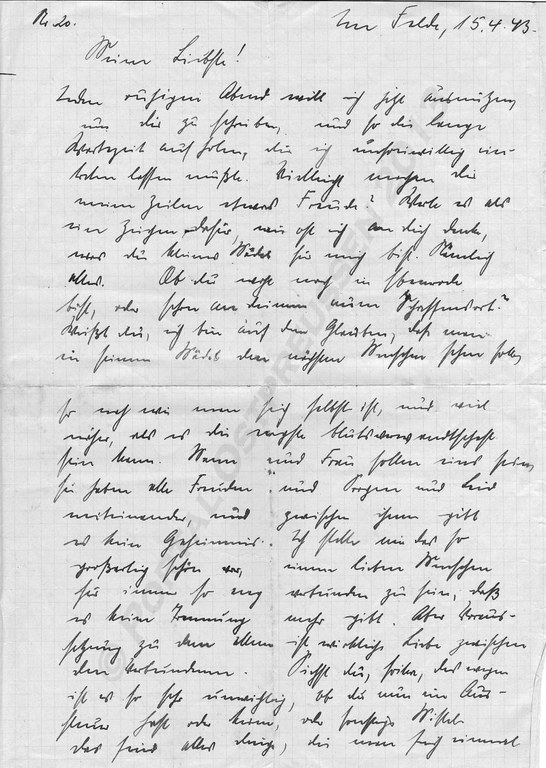 Nr. 20. Im Felde, 15.4.43.
Meine Liebste!
Jeden ruhigen Abend will ich jetzt ausnutzen,
um dir zu schreiben, und so die lange
Wartezeit aufholen, die ich unfreiwillig ein-
treten lassen mußte. Vielleicht machen dir
meine Zeilen etwas Freude? Werte es als
ein Zeichen dafür, wie oft ich an dich denke,
was du kleines Mädel für mich bist. Nämlich
alles. Ob du wohl noch in
bist, oder schon an deinem neuen Schaffensort?
Weißt du, ich bin auf dem Glauben, daß man
in seinem Mädel den nächsten Menschen sehen soll,
so nah wie man sich selbst ist, und viel
näher, als es die engste Blutsverwandtschaft
sein kann. Mann und Frau sollen eins sein,
sie haben alle Freuden und Sorgen und Leid
miteinander, und zwischen ihnen gibt
es kein Geheimnis. Ich stelle mir das so
großartig schön vor, einem lieben Menschen
für immer so eng verbunden zu sein, daß
es keine Trennung mehr gibt. Aber Voraus-
setzung zu dem allem ist wirkliche Liebe zwischen
den Verbundenen. Siehst du, deswegen
ist es so sehr unwichtig, ob du nun eine Aus-
steuer hast oder keine, oder sonstige Mittel.
Das sind alles Dinge, die man sich einmal